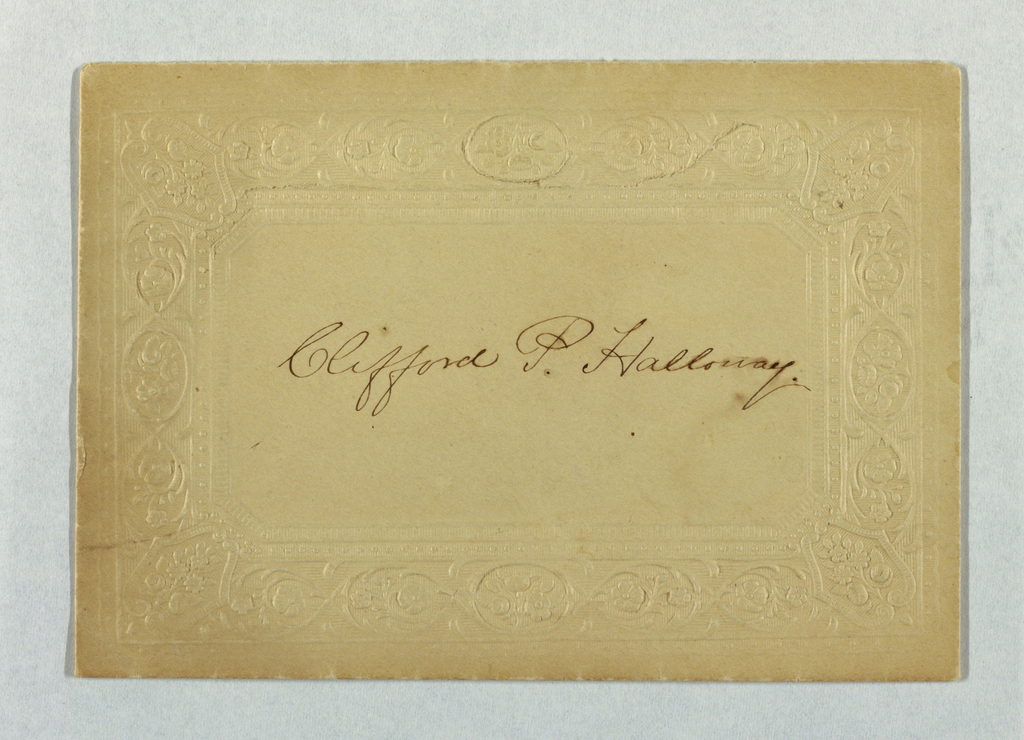 Clifford P. Halloway.